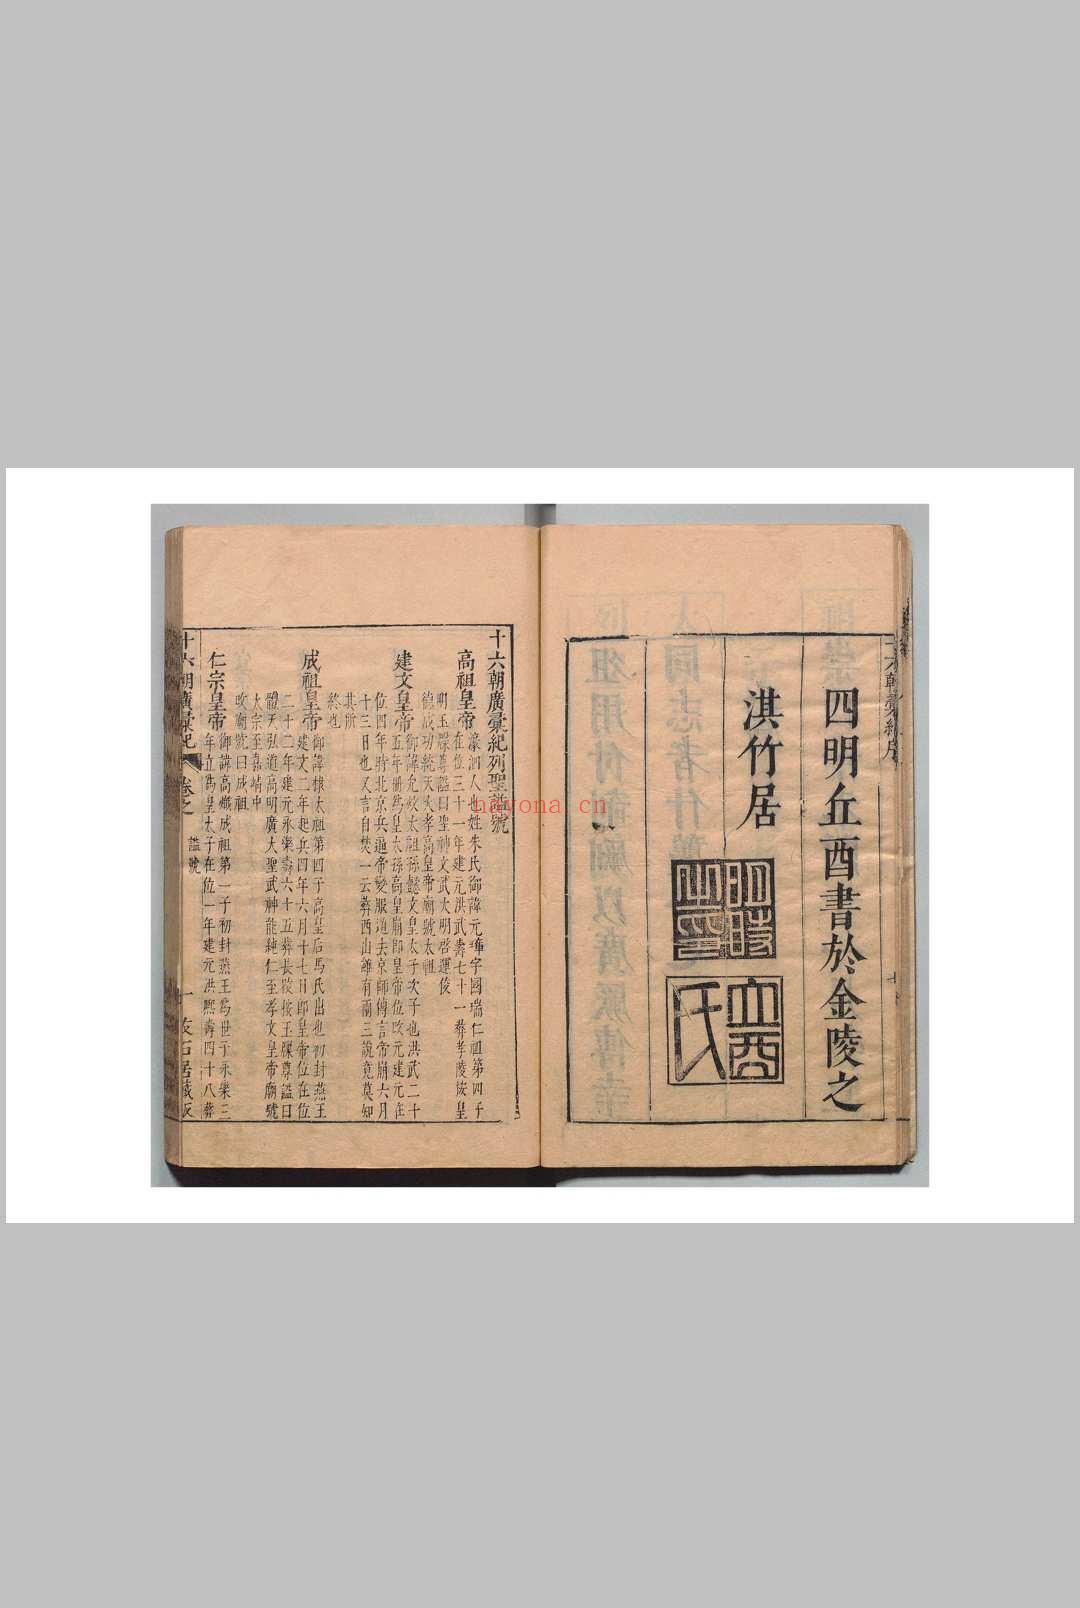 四明丘酉書於金陵之
淇竹居
十六朝廣彙紀列聖諡號
高祖皇帝
濠泗人也姓朱氏御諱元璋字國瑞仁祖第四子
在位三十一年建元洪武壽七十一葬孝陵按皇
明玉牒尊諡曰聖神文武大明啓運俊
德成功統天大孝高皇帝廟號太祖
建文皇帝
御諱允炆太祖孫懿文皇太子次子也洪武二十
五年册爲皇太孫高皇崩即皇帝位改元建元在
位四年時北京兵逼帝變服遁去京師傳言帝崩六月
十三日也又言自焚一云葬西山雖有兩三說竟莫知
其所
終也
成祖皇帝
御諱棣太祖第四子高皇后馬氏出也初封燕王
建文二年起兵四年六月十七日即皇帝位在位
二十二年建元永樂壽六十五葬長陵按玉牒尊諡曰
體天弘道高明廣大聖武神能純仁至孝文皇帝廟號
太宗至嘉靖中
改廟號曰成祖
仁宗皇帝
御諱高熾成祖第一子初封燕王爲世子永樂二
年立爲皇太子在位一年建元洪熙壽四十八葬
十六朝廣彙紀
卷之
諡號
一
友石居藏板
nayona.cn